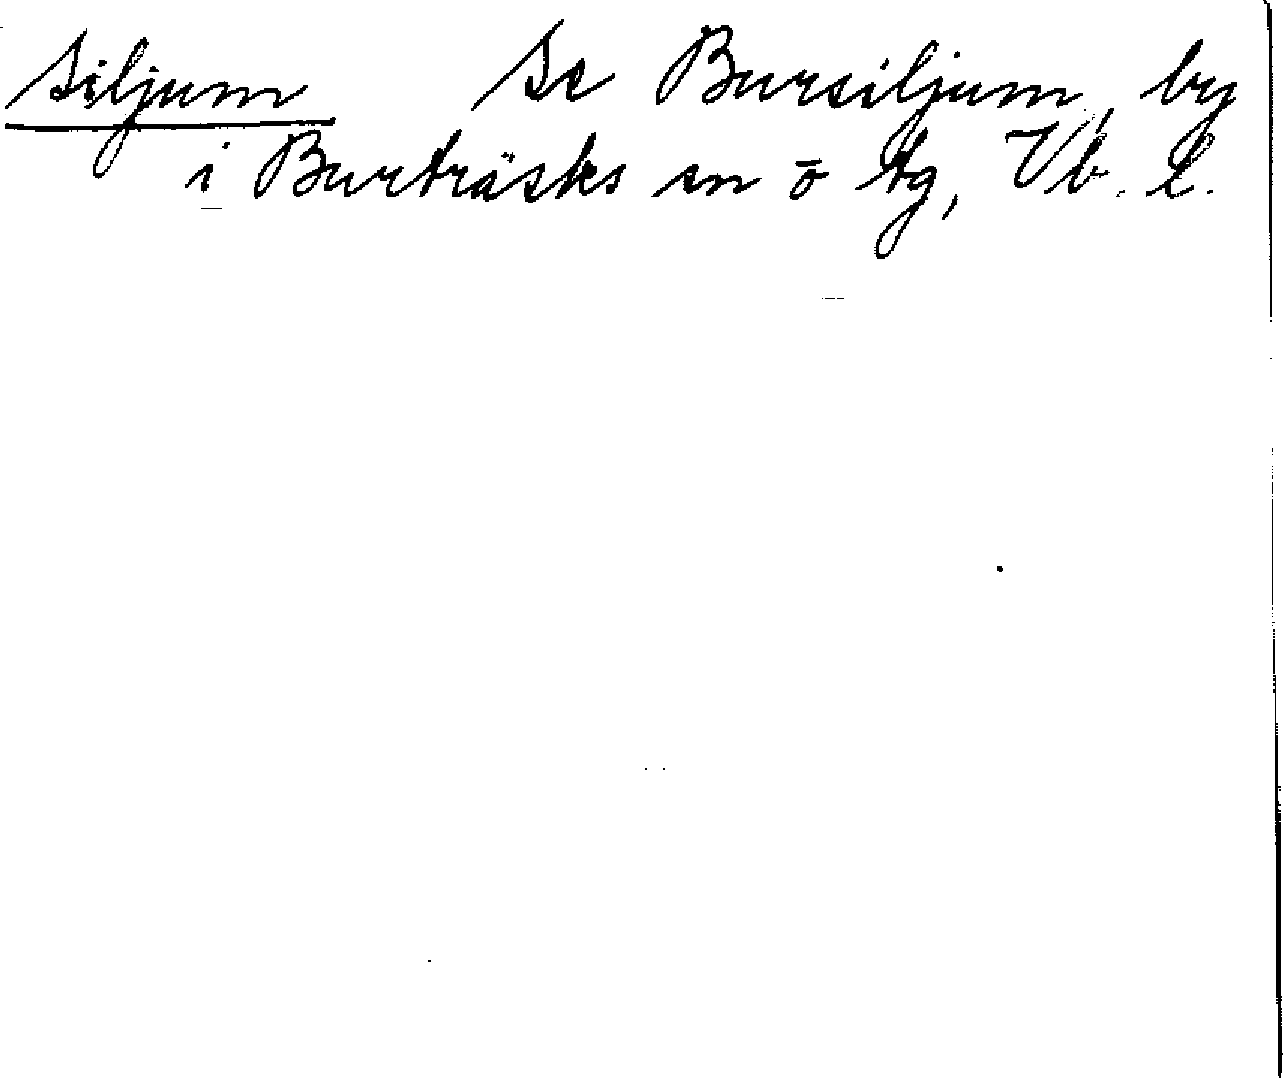 Siljum Se Bursiljum, by
i Burträsks sn o tg, Vb. l.